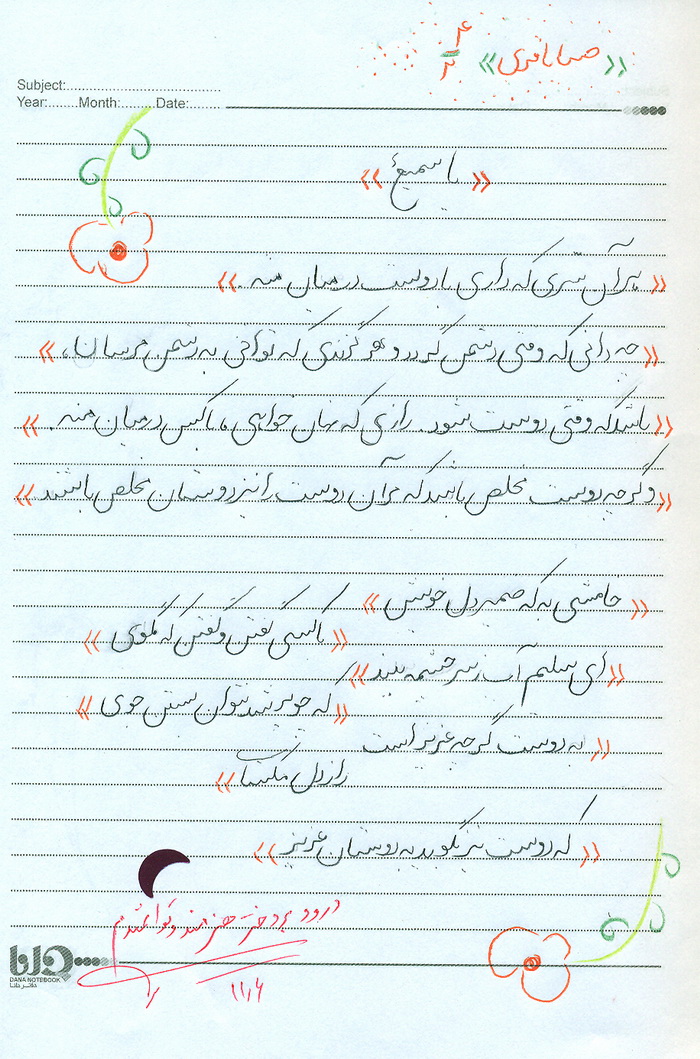 «صبا باقری» ۴/۲
Subject:
Year: Month: Date:
«یا سمیعُ»
«هر آن سری که داری با دوست در میان منه.»
«چه دانی که وقتی دشمن گردد و هر گزندی که توانی به دشمن مرسان،»
«باشد که وقتی دوست شود. رازی که نهان خواهی، با کس در میان منه.»
«وگرچه دوست مخلص باشد که مرآن دوست را نیز دوستان مخلص باشند»
«خامشی به که ضمیر دل خویش»
«با کسی گفتن و گفتن که مگوی»
«ای سلیم آب ز سرچشمه ببند»
«که چو پر شد نتوان بستن جوی»
«به دوست گرچه عزیز است
راز دل مگشا»
«که دوست نیز گوید به دوستان عزیز»
درود بر دختر هنرمند و توانمندم
۱۱/۶
دانا
DANA NOTEBOOK
دفتر دانا